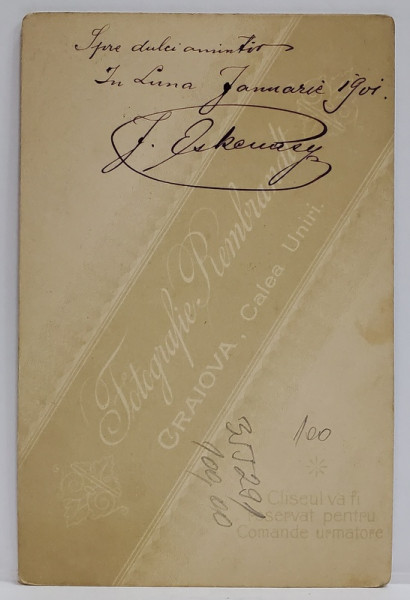 Spre dulci amintiri
In Luna Januarie 1901.
J. Eskenasy
Fotografie Rembrandt
CRAIOVA, Calea Unirii.
100
355291
100,00
Cliseul va fi
reservat pentru
Comande urmatore